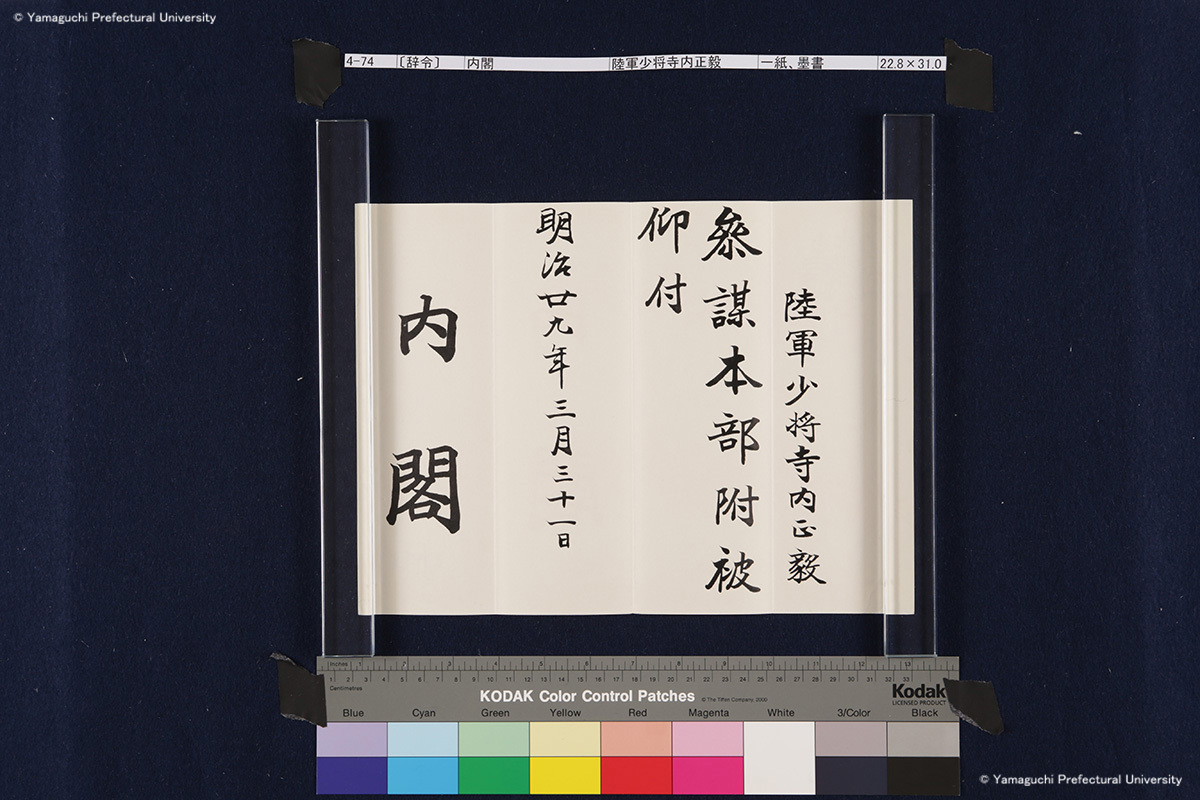 © Yamaguchi Prefectural University
4-74 〔辞令〕 内閣 陸軍少将寺内正毅 一紙、墨書 22.8×31.0
陸軍少将寺内正毅
参謀本部附被
仰付
明治廿九年三月三十一日
内閣
Inches 1 2 3 4 5 6 7 8 9 10 11 12 13
1 2 3 4 5 6 7 8 9 10 11 12 13 14 15 16 17 18 19 20 21 22 23 24 25 26 27 28 29 30 31 32 33
Centimetres
KODAK Color Control Patches © The Tiffen Company, 2000
Kodak
LICENSED PRODUCT
Blue Cyan Green Yellow Red Magenta White 3/Color Black
© Yamaguchi Prefectural University